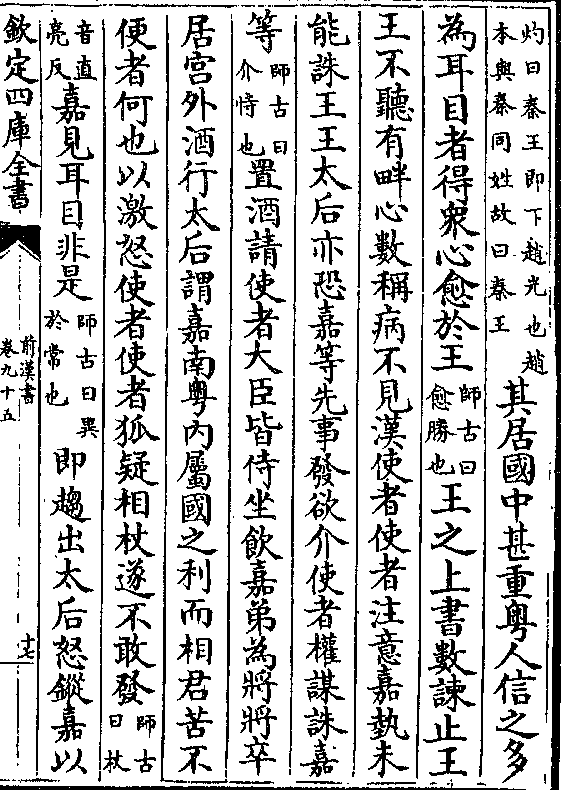 灼曰秦王即下趙光也趙
本與秦同姓故曰秦王
其居國中甚重粤人信之多
為耳目者得衆心愈於王
師古曰
愈勝也
王之上書數諫止王
王不聽有畔心數稱病不見漢使者使者注意嘉埶未
能誅王王太后亦恐嘉等先事發欲介使者權謀誅嘉
等
師古曰
介恃也
置酒請使者大臣皆侍坐飲嘉弟為將將卒
居宫外酒行太后謂嘉南粤内屬國之利而相君苦不
便者何也以激怒使者使者狐疑相杖遂不敢發
師古
曰杖
音直
亮反
嘉見耳目非是
師古曰異
於常也
即趨出太后怒鏦嘉以
欽定四庫全書
前漢書
卷九十五
十七